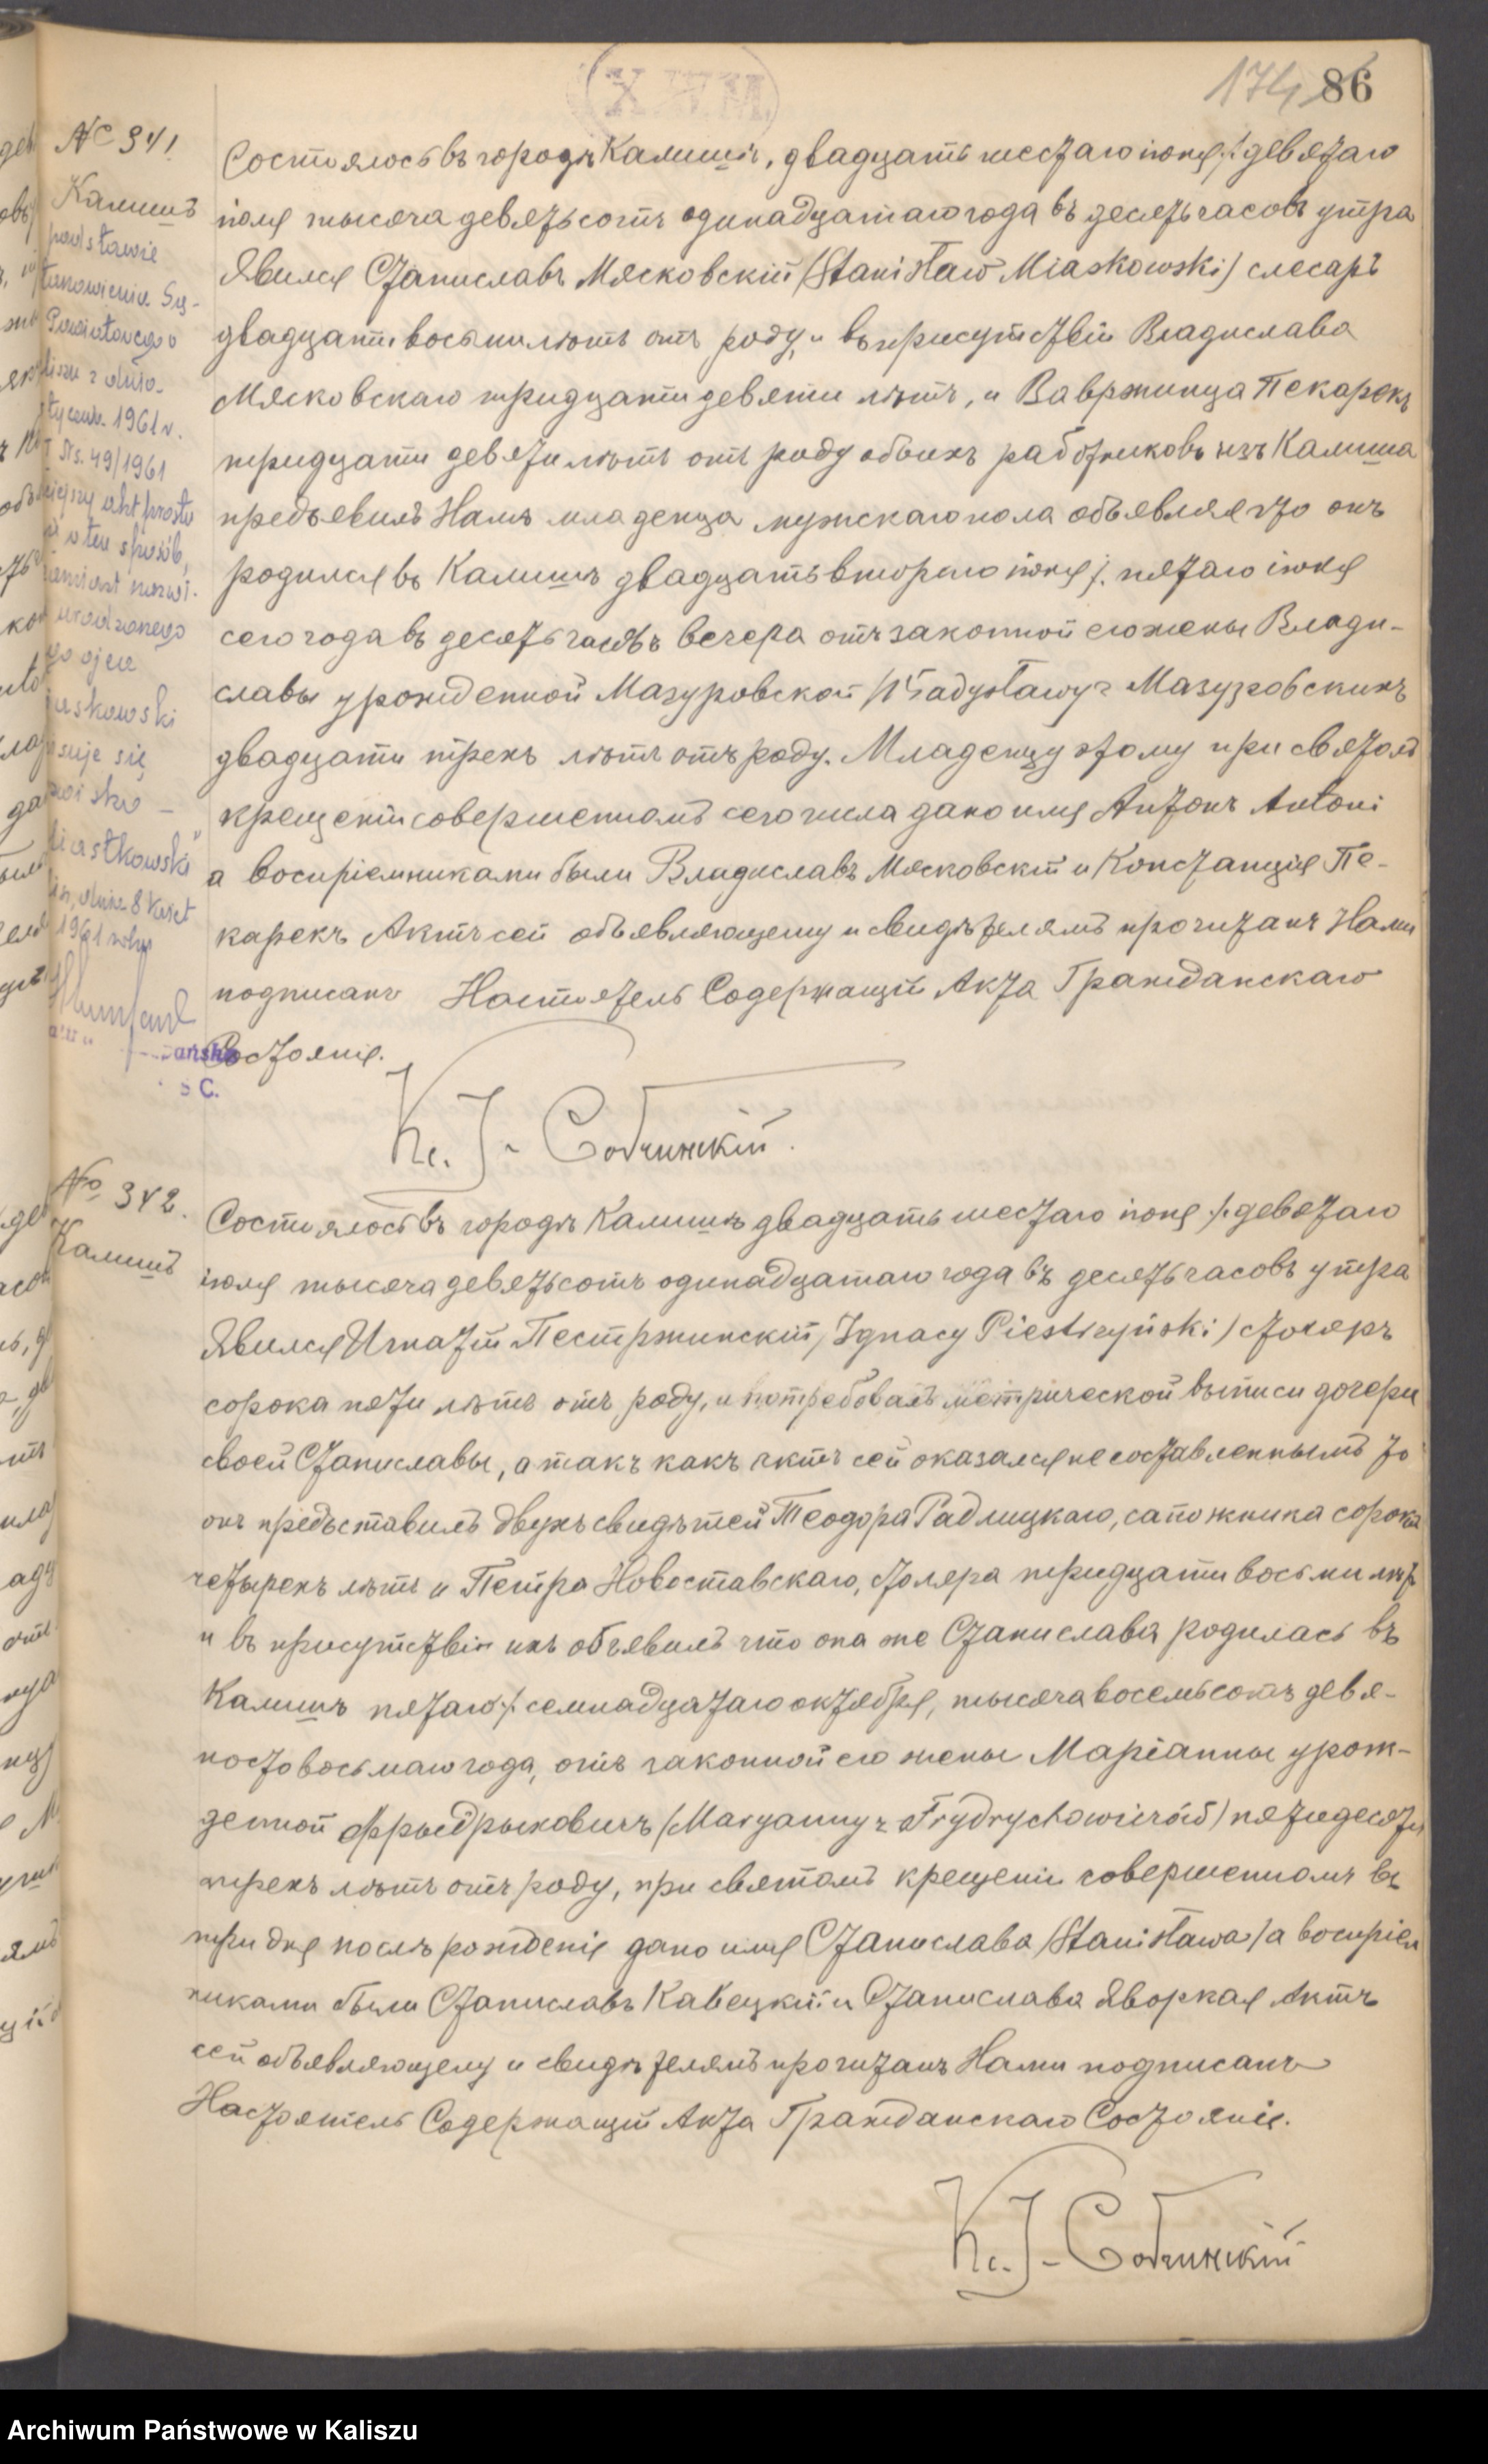 174 86
№ 341
Калишъ
Состоялось въ городѣ Калишѣ, двадцать шестаго іюня /: девятаго
іюля тысяча девятьсотъ одинадцатаго года въ десять часовъ утра
Явился Станиславъ Мясковскій /Stanisław Miaskowski/ слесарь
двадцати восьми лѣтъ отъ роду, и въ присутствіи Владислава
Мясковскаго тридцати девяти лѣтъ, и Вавржинца Пекарекъ
тридцати девяти лѣтъ отъ роду обоихъ работниковъ изъ Калиша
предъявилъ Намъ младенца мужскаго пола объявляя что онъ
родился въ Калишѣ двадцать втораго іюня /: пятаго іюля
сего года въ десять часовъ вечера отъ законной его жены Влади-
славы урожденной Мазуровской /Władysławy z Мазуровскихъ
двадцати трехъ лѣтъ отъ роду. Младенцу этому при святомъ
крещеніи совершенномъ сего числа дано имя Антонъ Antoni
а воспріемниками были Владиславъ Мясковскій и Констанція Пе-
карекъ Актъ сей объявляющему и свидѣтелямъ прочитанъ Нами
подписанъ Настоятель Содержащій Акта Гражданскаго
Состоянія.
Кс. J. Собчинскій.
podstawie
tanowienia Są-
Powiatowego
liszu z dnia
stycznia 1961 r.
Ns. 49/1961
niejszy akt prostu
w ten sposób,
zamiast nazwi-
urodzonego
go ojca
iaskowski
suje się
wisko –
iastkowski"
dnia 8 kwiet
1961 roku
ańska
S C.
№ 342.
Калишъ
Состоялось въ городѣ Калишѣ двадцать шестаго іюня /: девятаго
іюля тысяча девятьсотъ одинадцатаго года въ десять часовъ утра
Явился Игнатій Пестржинскій /Ignacy Piestrzyński/ столяръ
сорока пяти лѣтъ отъ роду, и потребовалъ метрической выписи дочери
своей Станиславы, а такъ какъ актъ сей оказался не составленнымъ то
онъ представилъ двухъ свидѣтей Теодора Радлицкаго, сапожника сорока
четырехъ лѣтъ и Петра Новоставскаго, столяра тридцати восьми лѣтъ
и въ присутствіи ихъ объявилъ что она же Станислава родилась въ
Калишѣ пятаго /: семнадцатаго октября, тысяча восемьсотъ девя-
ностовосьмаго года, отъ законной его жены Маріанны урож-
денной Фрыдрыховичъ (Maryanny z Frydrychowiczów) пятидесяти
трехъ лѣтъ отъ роду, при святомъ крещеніи совершенномъ въ
три дня послѣ рожденія дано имя Станислава /Stanisława/ а воспріем
никами были Станиславъ Кавецкій и Станислава Яворкая Актъ
сей объявляющему и свидѣтелямъ прочитанъ Нами подписанъ
Настоятель Содержащій Акта Гражданскаго Состоянія.
Кс. J. Собчинскій
Archiwum Państwowe w Kaliszu